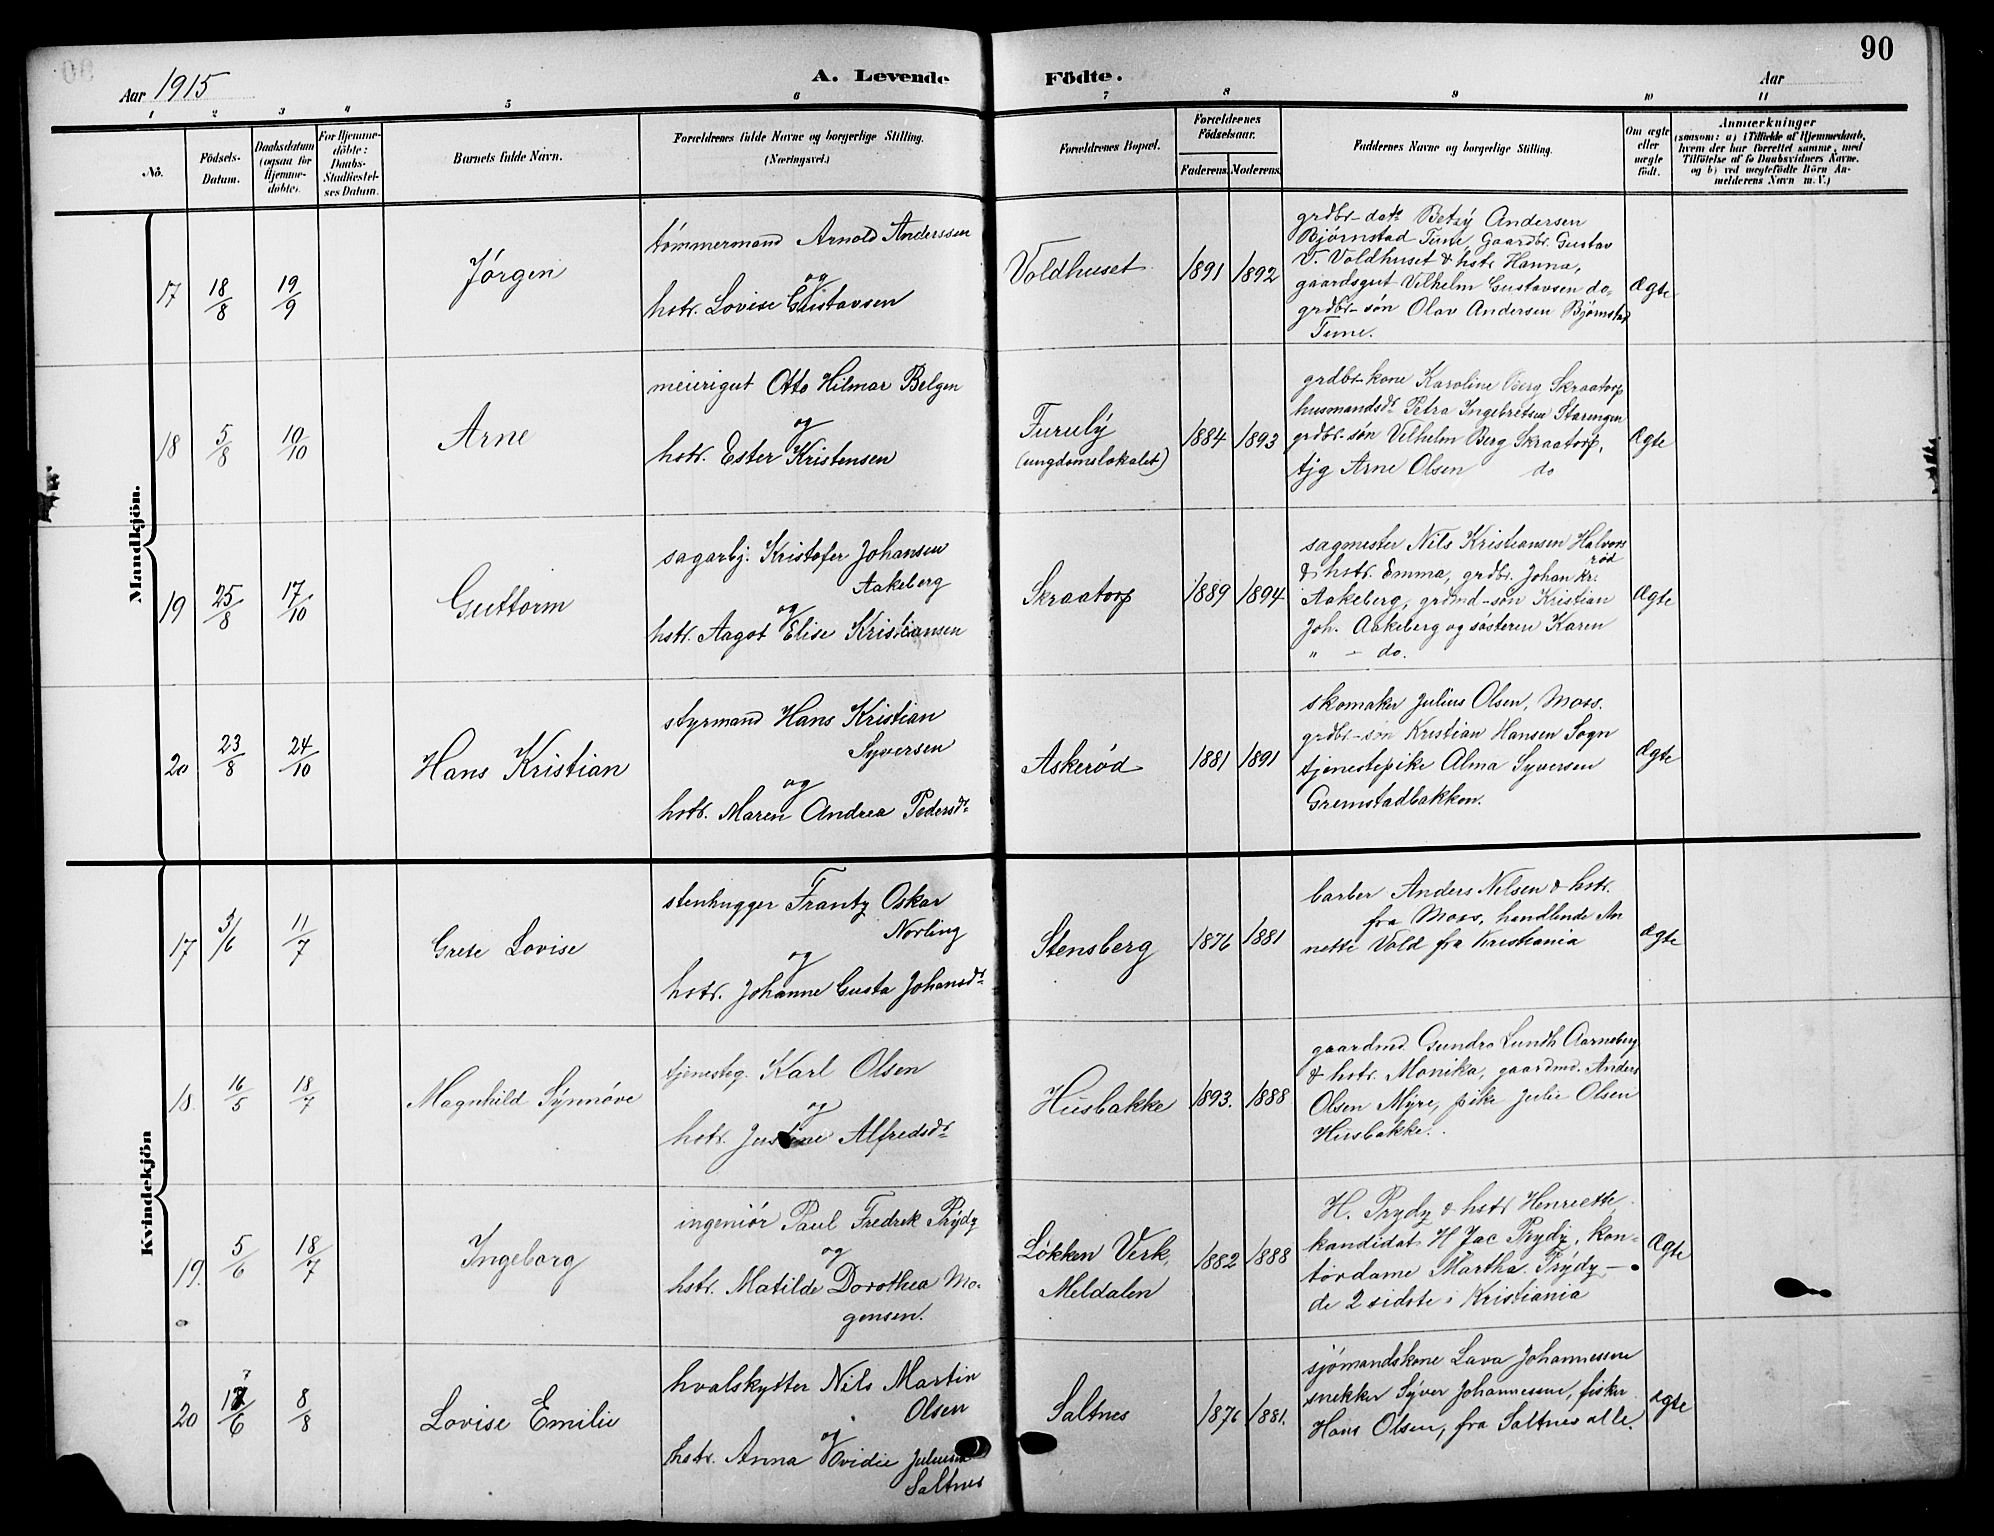 90
Aar 1915
A. Levende
Födte.
Aar
1 2 3 4 5 6 7 8 9 10 11
No.
Födsels-
Datum.
Daabsdatum
(ogsaa for
Hjemme-
döbte).
For Hjemme-
döbte:
Daabs-
Stadfæstel-
ses Datum.
Barnets fulde Navn.
Forældrenes fulde Navne og borgerlige Stilling.
(Næringsvei.)
Forældrenes Bopæl.
Forældrenes
Födselsaar.
Faderens. Moderens.
Faddernes Navne og borgerlige Stilling.
Om ægte
eller
uægte
födt.
Anmærkninger
(saasom: a) i Tilfælde af Hjemmedaab,
hvem der har forrettet samme, med
Tilföielse af to Daabsvidners Navne.
og b) ved uægtefödte Börn An-
melderens Navn m. V.)
Mandkjön.
17 18/8 19/9
Jörgen
tömmermand Arnold Anderssen
og
hstr. Lovise Gustavsen
Voldhuset
1891 1892
grdbr-datr Betzy Andersen
Bjørnstad Tune, Gaardbr. Gustav
V. Voldhuset & hstr Hanna,
gaardsgut Vilhelm Gustavsen do-
grdbr-søn Olav Andersen Bjørnstad
Tune.
Ægte
18 5/8 10/10
Arne
meierigut Otto Hilmar Belgen
og
hstr. Ester Kristensen
Furuly
(ungdomslokalet)
1884 1893
grdbr-kone Karoline Berg Skraatorp
husmandsdr Petra Ingebretsen Starengen
grdbr-søn Vilhelm Berg Skraatorp,
tjg Arne Olsen do
Ægte
19 25/8 17/10
Guttorm
sagarbj. Kristofer Johansen
Aakeberg
og
hstr. Aagot Elise Kristiansen
Skraatorp
1889 1894
sagmester Nils Kristiansen Halvors
rød
& hstr. Emma, grdbr. Johan Kr.
Aakeberg, grdmd-søn Kristian
Joh. Aakeberg og søsteren Karen
" - do.
Ægte
20 23/8 24/10
Hans Kristian
styrmand Hans Kristian
Syversen
og
hstr. Maren Andrea Pedersdr
Askerød
1881 1891
skomaker Julius Olsen, Moss.
grdbr-søn Kristian Hansen Sogn
tjenestepike Alma Syversen
Gremstadbakken.
Ægte
Kvindekjön
17 3/6 11/7
Grete Lovise
stenhugger Frantz Oskar
Norling
og
hstr. Johanne Gusta Johansdr
Stensberg
1876 1881
barber Anders Nilsen & hstr.
fra Moss, handlende An
nette Vold fra Kristiania
Ægte
18. 16/5 18/7
Magnhild Synnøve
tjenesteg. Karl Olsen
og
hstr. Justine Alfredsdr
Husbakke
1893. 1888
gaardmd. Gundro Lundh Aarneberg
& hstr. Monika, gaardmd. Anders
Olsen Myre, pike Julie Olsen
Husbakke.
19. 5/6 18/7
Ingeborg
ingeniør Paul Fredrek Prydz
og
hstr. Matilde Dorothea Mo-
gensen.
Løkken Verk,
Meldalen
1882 1888
H. Prydz & hstr Henriette
kandidat H Jac Prydz, kon-
tordame Martha Prydz —
de 2 sidste i Kristiania
Ægte
20 17/6 8/8
Lovise Emilie
hvalskytter Nils Martin
Olsen
og
hstr. Anna Ovidie Juliusdr
Saltnes
Saltnes
1876 1881.
sjömandskone Lava Johannessen
snekker Syver Johannessen, fisker
Hans Olsen, fra Saltnes alle.
Ægte